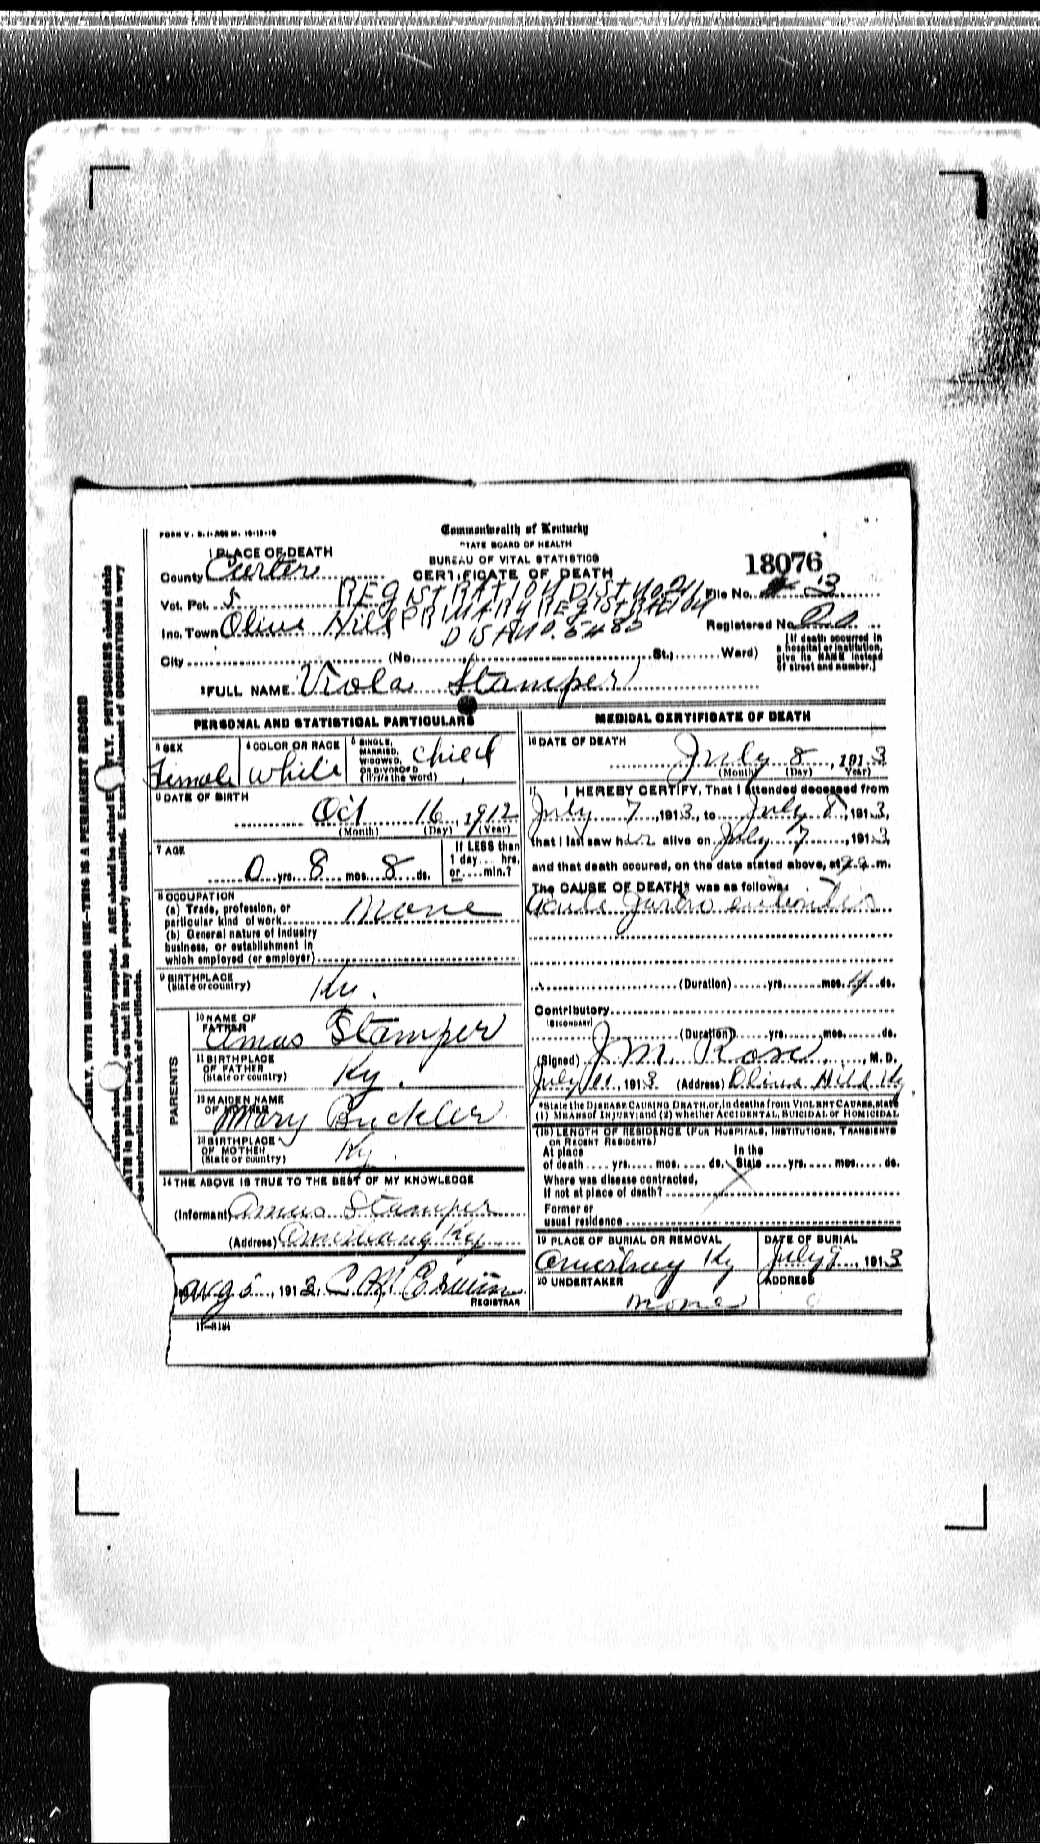 FORM V. S. 1-
Commonwealth of Kentucky
STATE BOARD OF HEALTH
BUREAU OF VITAL STATISTICS
CERTIFICATE OF DEATH
18076
1 PLACE OF DEATH
County Carter
Vot. Pct. 5
REGISTRATION DIST NO
File No. 13
Inc. Town Olive Hill
PRIMARY REGISTRATION
DIST NO. 5485
Registered No.
[If death occurred in a hospital or institution, give its NAME instead of street and number.]
City (No. St.; Ward)
2 FULL NAME Viola Stamper
PERSONAL AND STATISTICAL PARTICULARS
3 SEX Female
4 COLOR OR RACE White
5 SINGLE, MARRIED, WIDOWED, OR DIVORCED (Write the word) Chield
6 DATE OF BIRTH
Oct 16, 1912
(Month) (Day) (Year)
7 AGE
0 yrs. 8 mos. 8 ds.
If LESS than 1 day hrs. or min.?
8 OCCUPATION
(a) Trade, profession, or particular kind of work None
(b) General nature of industry business, or establishment in which employed (or employer)
9 BIRTHPLACE
(State or country) Ky.
PARENTS
10 NAME OF FATHER Amas Stamper
11 BIRTHPLACE OF FATHER (State or country) Ky.
12 MAIDEN NAME OF MOTHER Mary Buckler
13 BIRTHPLACE OF MOTHER (State or country) Ky.
14 THE ABOVE IS TRUE TO THE BEST OF MY KNOWLEDGE
(Informant) Amas Stamper
(Address) Ky
Aug 5, 1913 C. M. Erwin
REGISTRAR
11-8184
MEDICAL CERTIFICATE OF DEATH
16 DATE OF DEATH
July 8, 1913
(Month) (Day) Year)
17 I HEREBY CERTIFY, That I attended deceased from
July 7, 1913, to July 8, 1913,
that I last saw her alive on July 7, 1913,
and that death occured, on the date stated above, at m.
The CAUSE OF DEATH* was as follows:
Acute Gastro enteritis
(Duration) yrs. mos. 4 ds.
Contributory
(SECONDARY)
(Duration) yrs. mos. ds.
(Signed) J. M. Rose, M. D.
July 1913 (Address) Olive Hill Ky
*State the DISEASE CAUSING DEATH, or, in deaths from VIOLENT CAUSES, state
(1) MEANS OF INJURY; and (2) whether ACCIDENTAL, SUICIDAL or HOMICIDAL
(18) LENGTH OF RESIDENCE (FOR HOSPITALS, INSTITUTIONS, TRANSIENTS
OR RECENT RESIDENTS)
At place In the
of death yrs. mos. ds. State yrs. mos. ds.
Where was disease contracted,
If not at place of death?
Former or
usual residence
19 PLACE OF BURIAL OR REMOVAL
Ky
DATE OF BURIAL
July 9, 1913
20 UNDERTAKER
None
ADDRESS